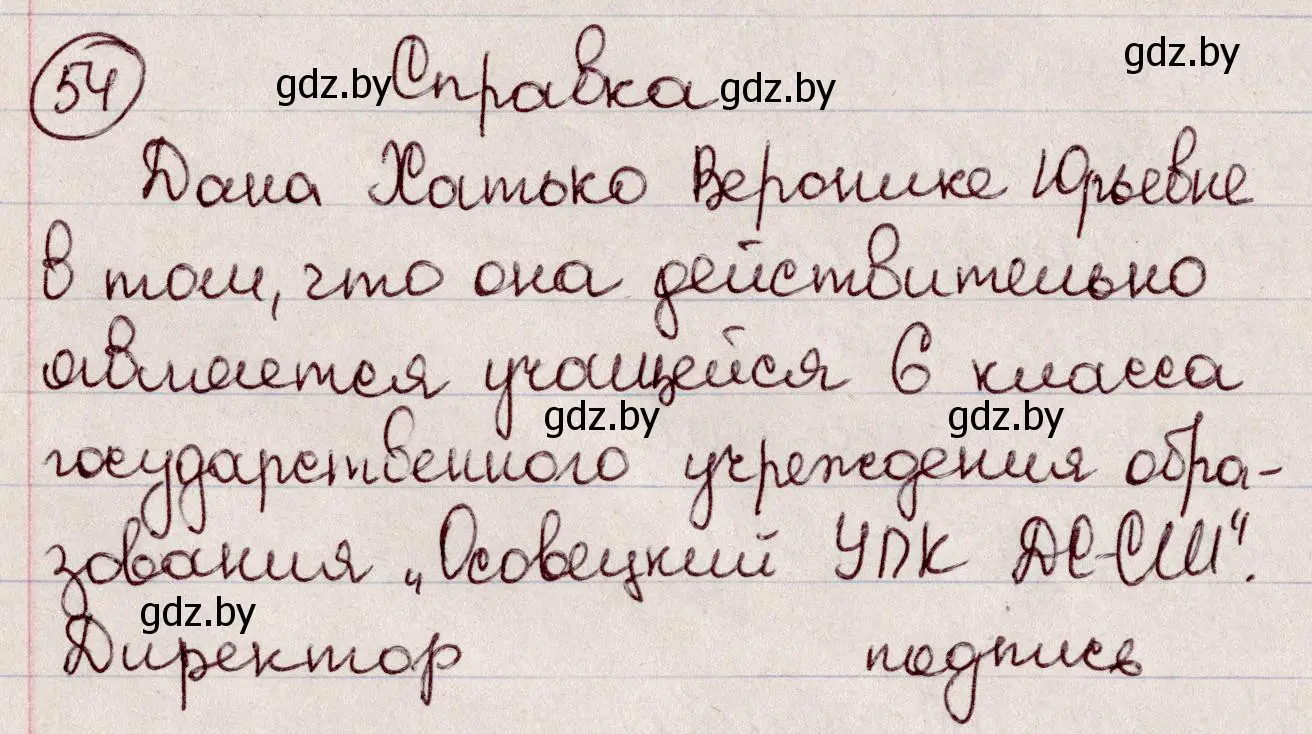 54 Справка
Дана Хатько Веронике Юрьевне
в том, что она действительно
является учащейся 6 класса
государственного учреждения обра-
зования „Осовецкий УПК ДС-СШ“.
Директор подпись
gdz.by
gdz.by
gdz.by
gdz.by
gdz.by
gdz.by